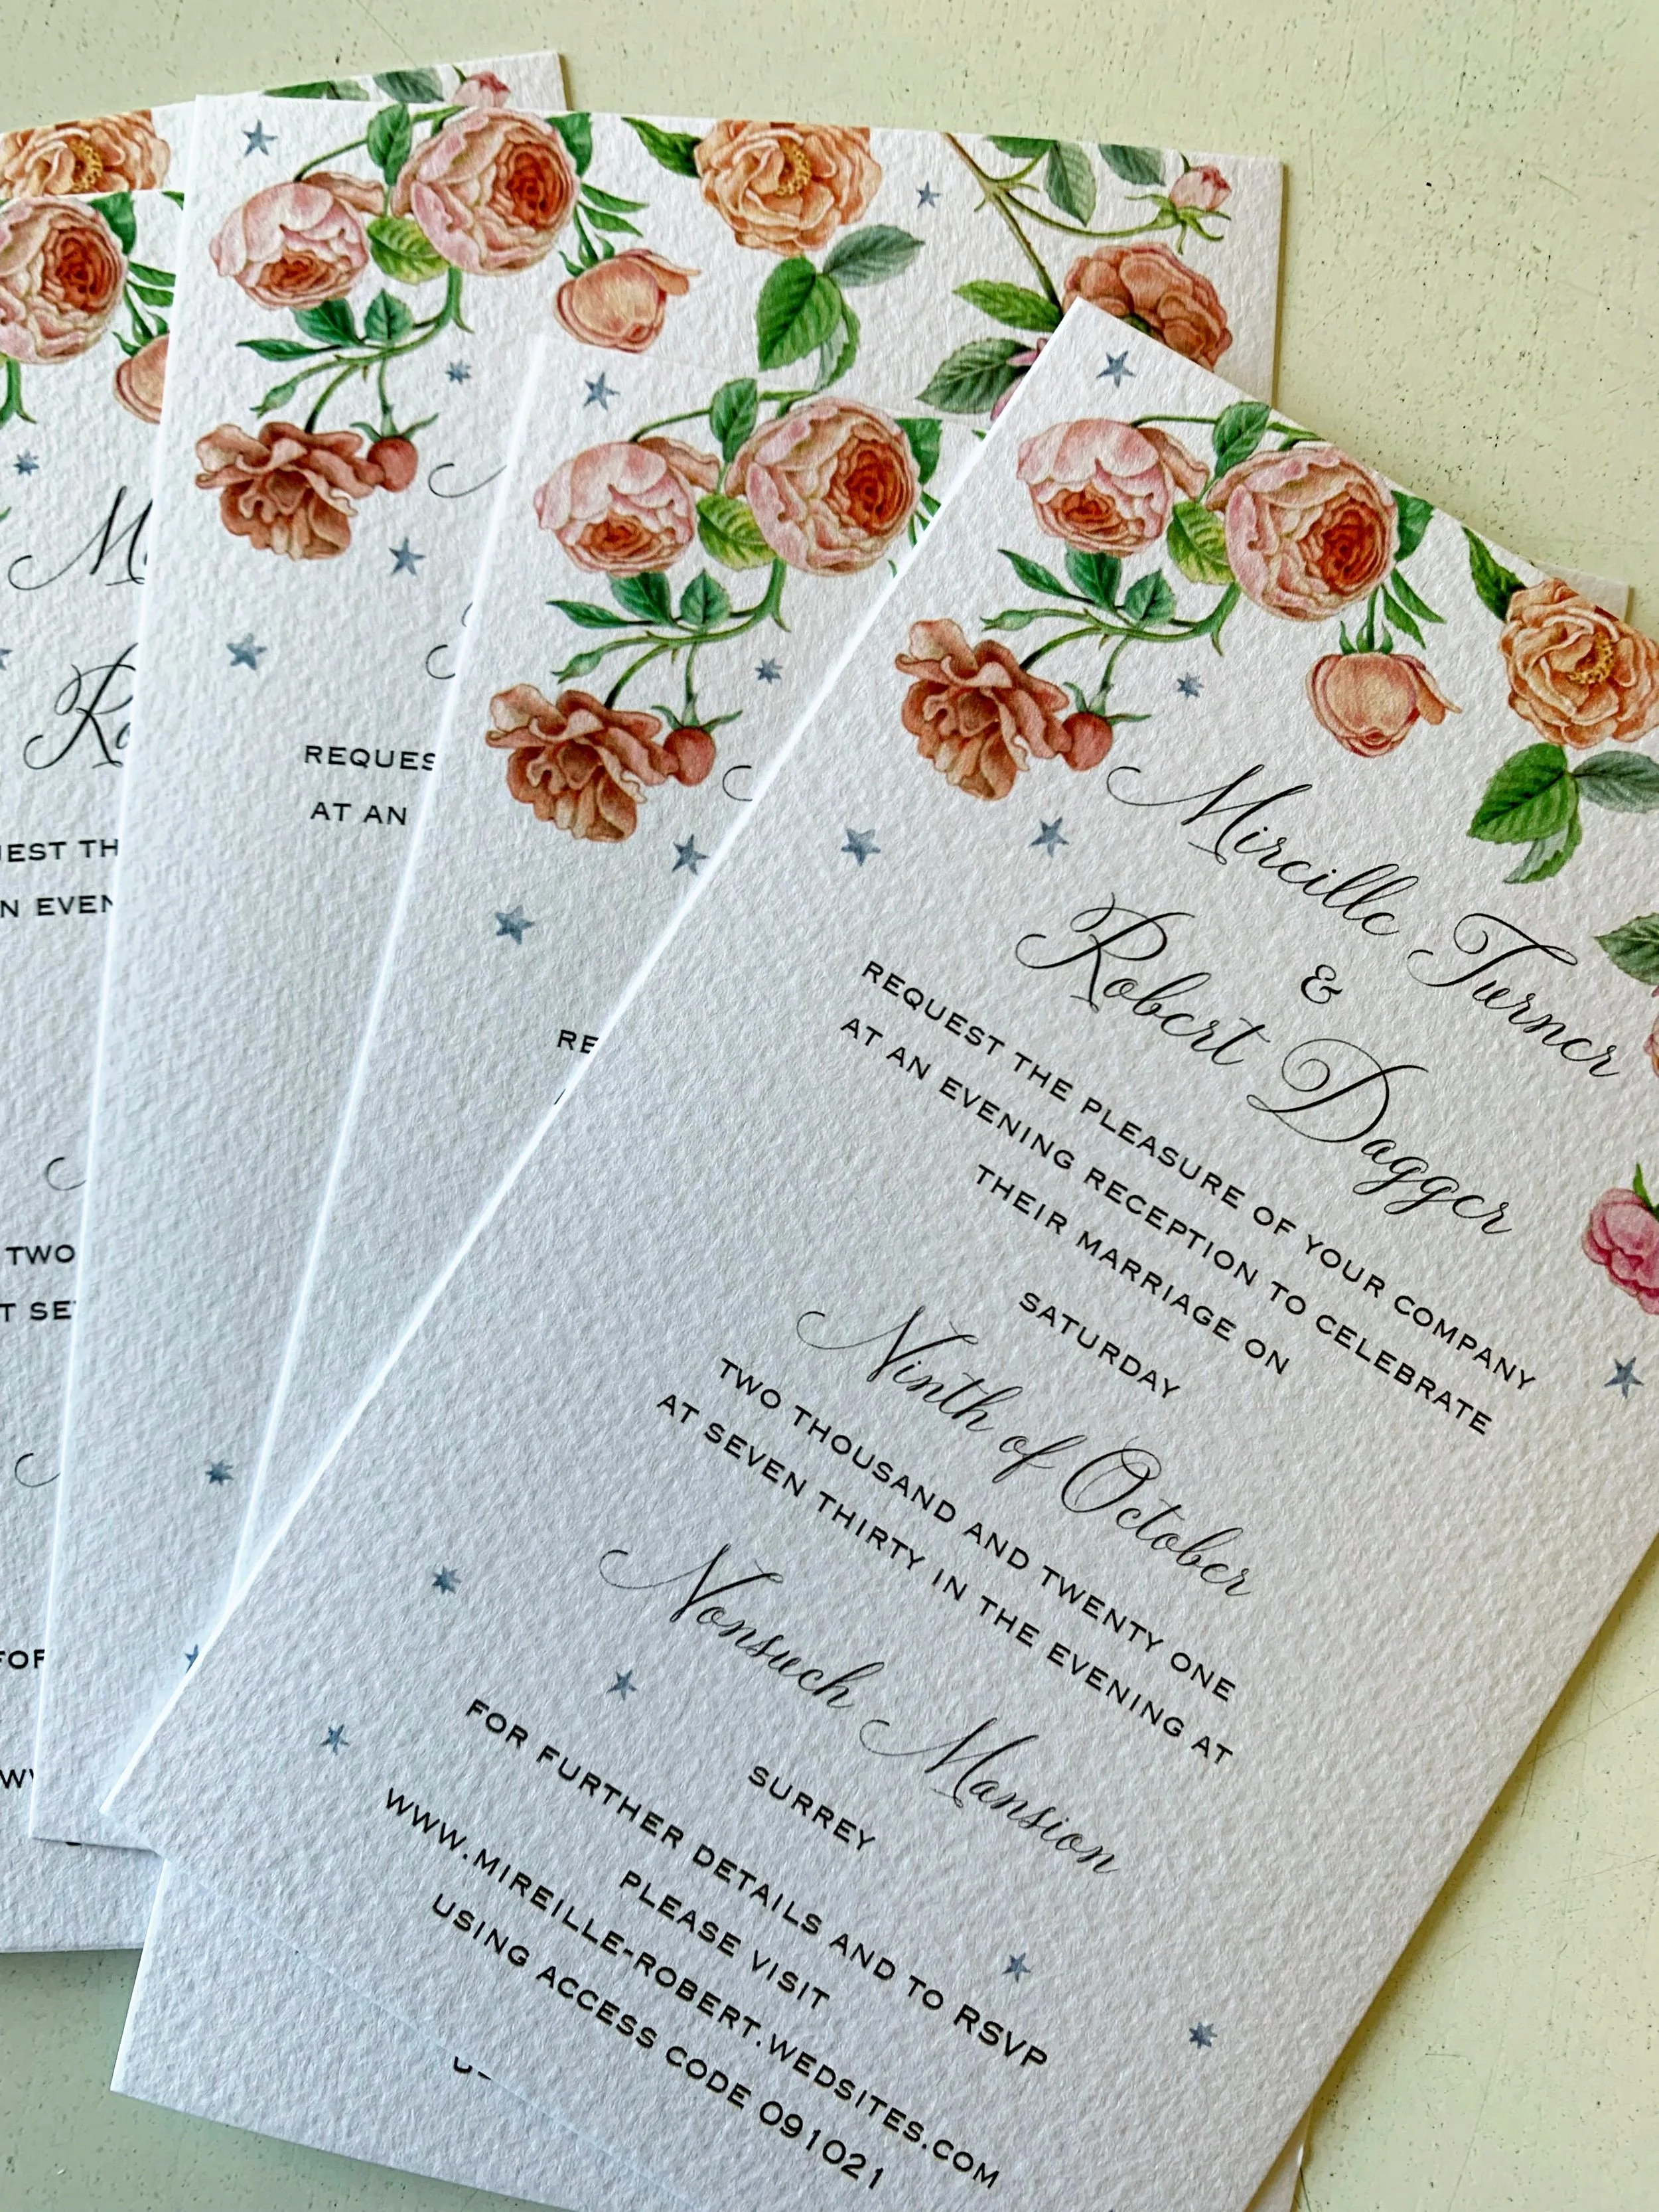 Mireille Turner
&
Robert Dagger
REQUEST THE PLEASURE OF YOUR COMPANY
AT AN EVENING RECEPTION TO CELEBRATE
THEIR MARRIAGE ON
SATURDAY
Ninth of October
TWO THOUSAND AND TWENTY ONE
AT SEVEN THIRTY IN THE EVENING AT
Nonsuch Mansion
SURREY
FOR FURTHER DETAILS AND TO RSVP
PLEASE VISIT
WWW.MIREILLE-ROBERT.WEDSITES.COM
USING ACCESS CODE 091021
RE
REQUES
AT AN
M
Ro
EST TH
N EVEN
TWO
T SE
FOR
W